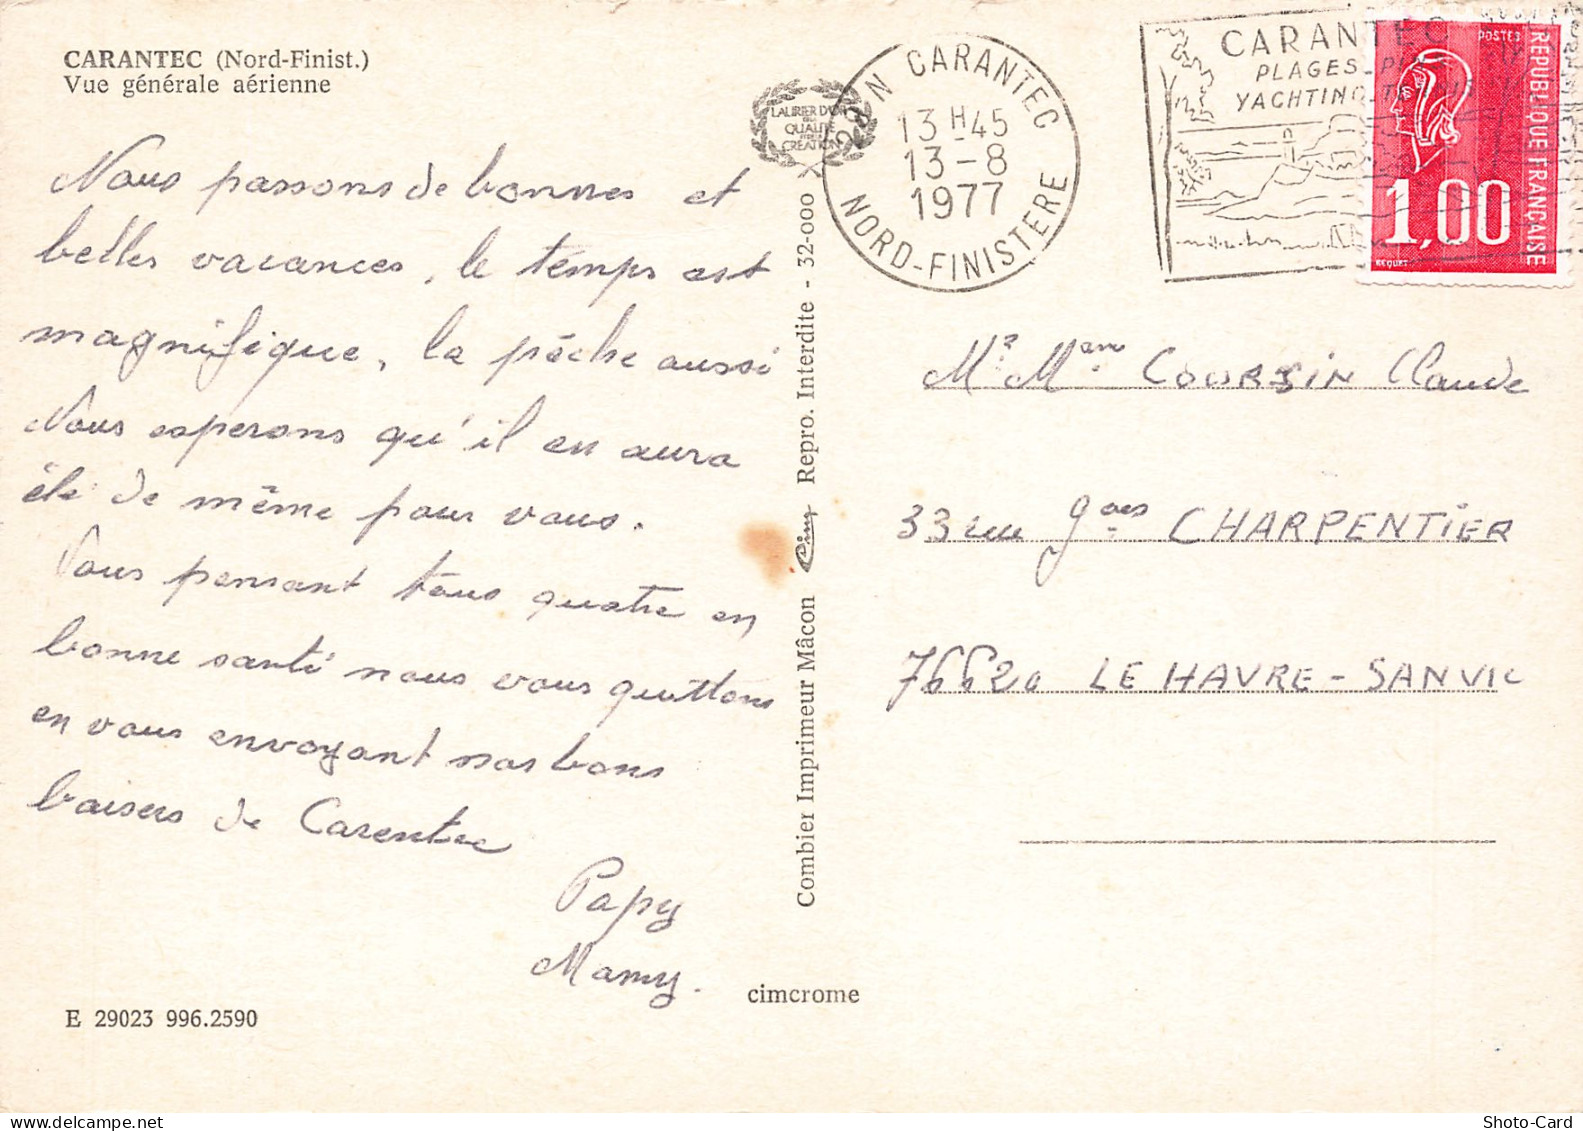 CARANTEC (Nord-Finist.)
Vue générale aérienne
Nous passons de bonnes et
belles vacances, le temps est
magnifique, la pêche aussi
Nous esperons qu'il en aura
été de même pour vous.
Vous pensant tous quatre en
bonne santé nous vous quittons
en vous envoyant nos bons
baisers de Carentec
Papy
Mamy.
E 29023 996.2590
cimcrome
Combier Imprimeur Mâcon Cim Repro. Interdite - 32-000
LAURIER D'OR
QUALITE
CREATION
CARANTEC
13H45
13-8
1977
NORD-FINISTERE
CARANTEC
PLAGES
YACHTING
POSTES
REPUBLIQUE FRANÇAISE
1,00
BEQUET
Mr Mme COURSIN Claude
33 rue Gves CHARPENTIER
76620 LE HAVRE - SANVIC
Shoto-Card
delcampe.net